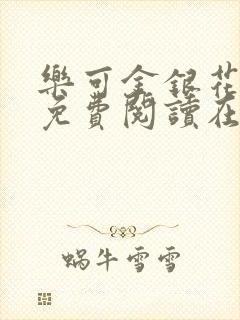 樂可金銀花
免費閱讀在
蝸牛雪雪